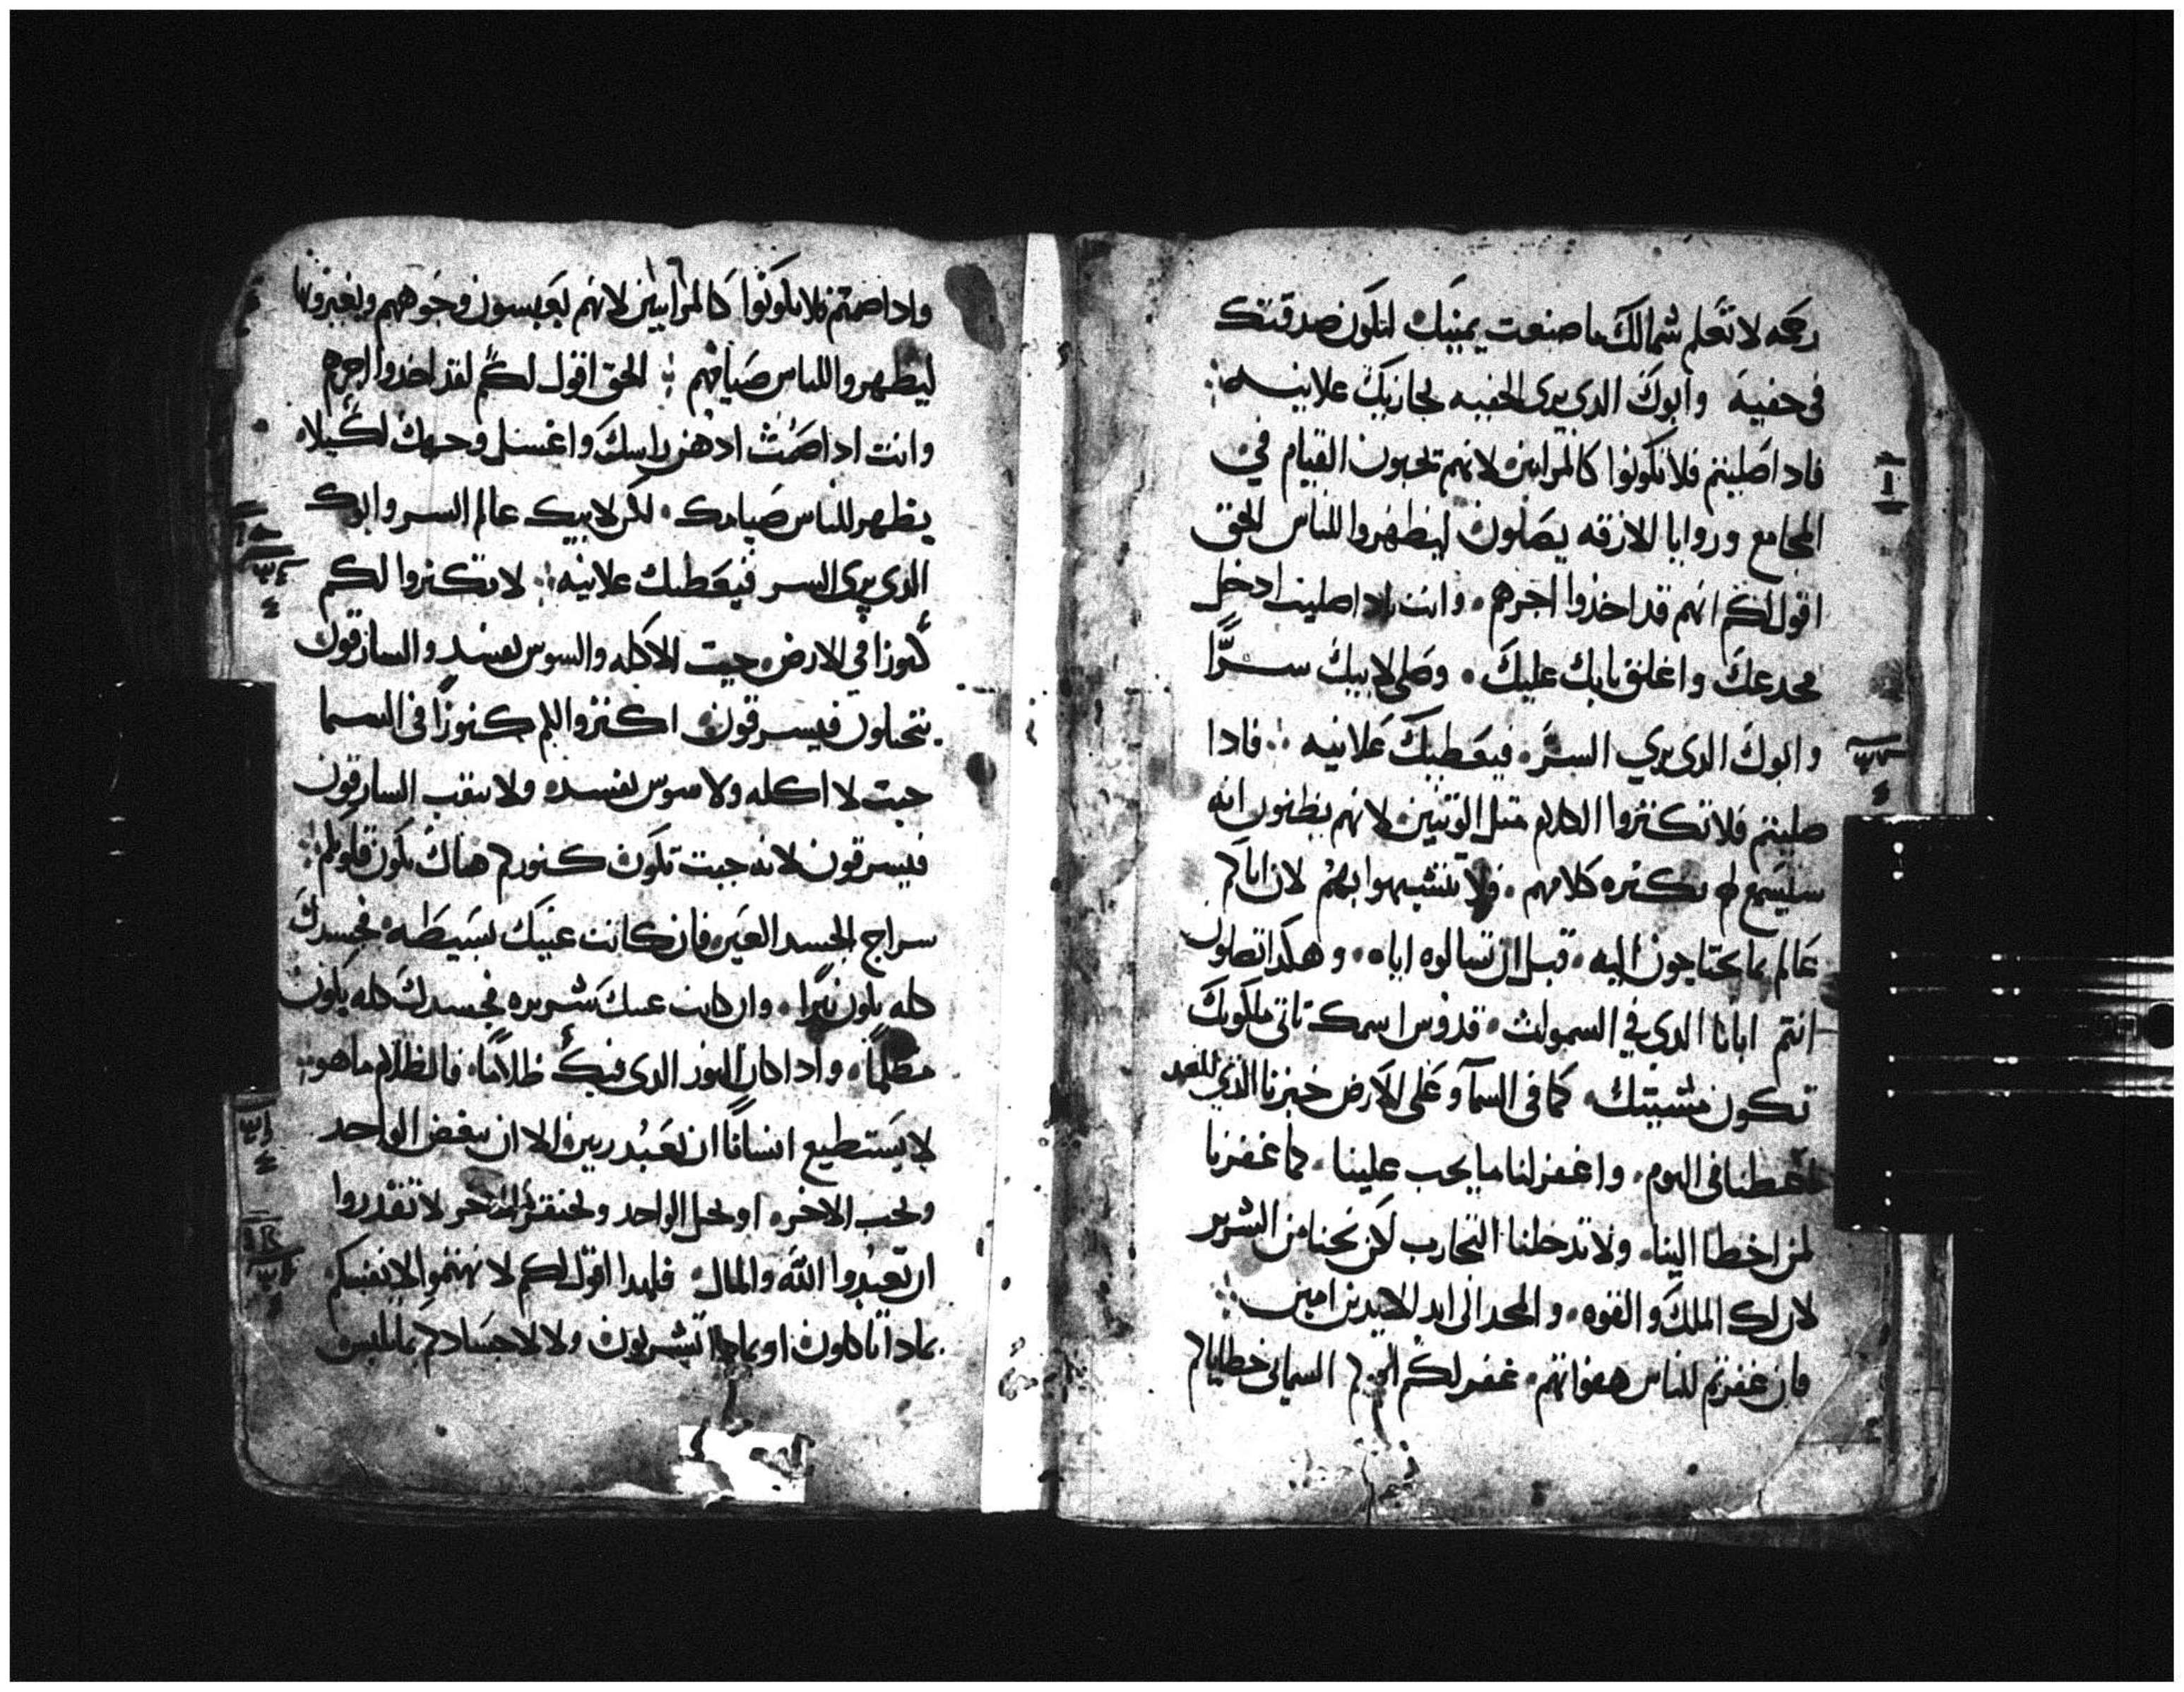 رحمه لا تعلم شمالك ما صنعت يمينك لتكون صدقتك
في خفيه وابوك الدي يرى الخفيه يجازيك علانيه
فادا صليتم فلا تكونوا كالمرايين لانهم يحبون القيام في
المجامع وزوايا الازقه يصلون ليظهروا للناس الحق
اقول لكم انهم قد اخذوا اجرهم وانت ادا صليت ادخل
مخدعك واغلق بابك عليك وصلي لابيك سرًّا
وابوك الدى يري السرّ فيعطيك علانيه فادا
صليتم فلا تكثروا الكلام متل الوتنيين لانهم يظنون انه
سيسمع لهم بكثره كلامهم فلا تتشبهوا بهم لان اباكم
عالم بما تحتاجون اليه قبل ان تسالوه اياه وهكدا تصلون
انتم ابانا الدي في السموات قدوس اسمك تاتي ملكوتك
تكون مشيتك كما في السما وعلى الارض خبزنا الذي للغد
اعطنا في اليوم واغفر لنا ما يجب علينا كما غفرنا
لمن اخطا الينا ولا تدخلنا التجارب لكن نجنا من الشرير
لان لك الملك والقوه والمجد الى ابد الابدين امين
فان غفرتم للناس هفواتهم غفر لكم ابوكم السماي خطاياكم
وادا صمتم فلا تكونوا كالمرايين لانهم يعبسون وجوههم ويغيرونها
ليظهروا للناس صيامهم الحق اقول لكم لقد اخدوا اجرهم
وانت ادا صمت ادهن راسك واغسل وجهك لكيلا
يظهر للناس صيامك لكن لابيك عالم السر وابوك
الدي يرى السر فيعطيك علانيه لا تكنزوا لكم
كنوزا في الارض حيت الاكله والسوس يفسد والسارقون
يتحيلون فيسرقون اكنزوا لكم كنوزًا في السما
حيت لا اكله ولا سوس يفسده ولا ينقب السارقون
فيسرقون لانه حيت تكون كنوزكم هناك تكون قلوبكم
سراج الجسد العين فان كانت عينك بسيطه فجسدك
كله يكون نيرا وان كانت عينك شريره فجسدك كله يكون
مظلمًا وادا كان النور الدى فيك ظلامًا فالظلام ما هو
لا يستطيع انسانًا ان يعبد ربين الا ان يبغض الواحد
ويحب الاخر او يجل الواحد ويحتقر الاخر لا تقدروا
ان تعبدوا الله والمال فلهدا اقول لكم لا تهتموا لانفسكم
بمادا تاكلون او بمادا تشربون ولا لاجسادكم بما تلبس